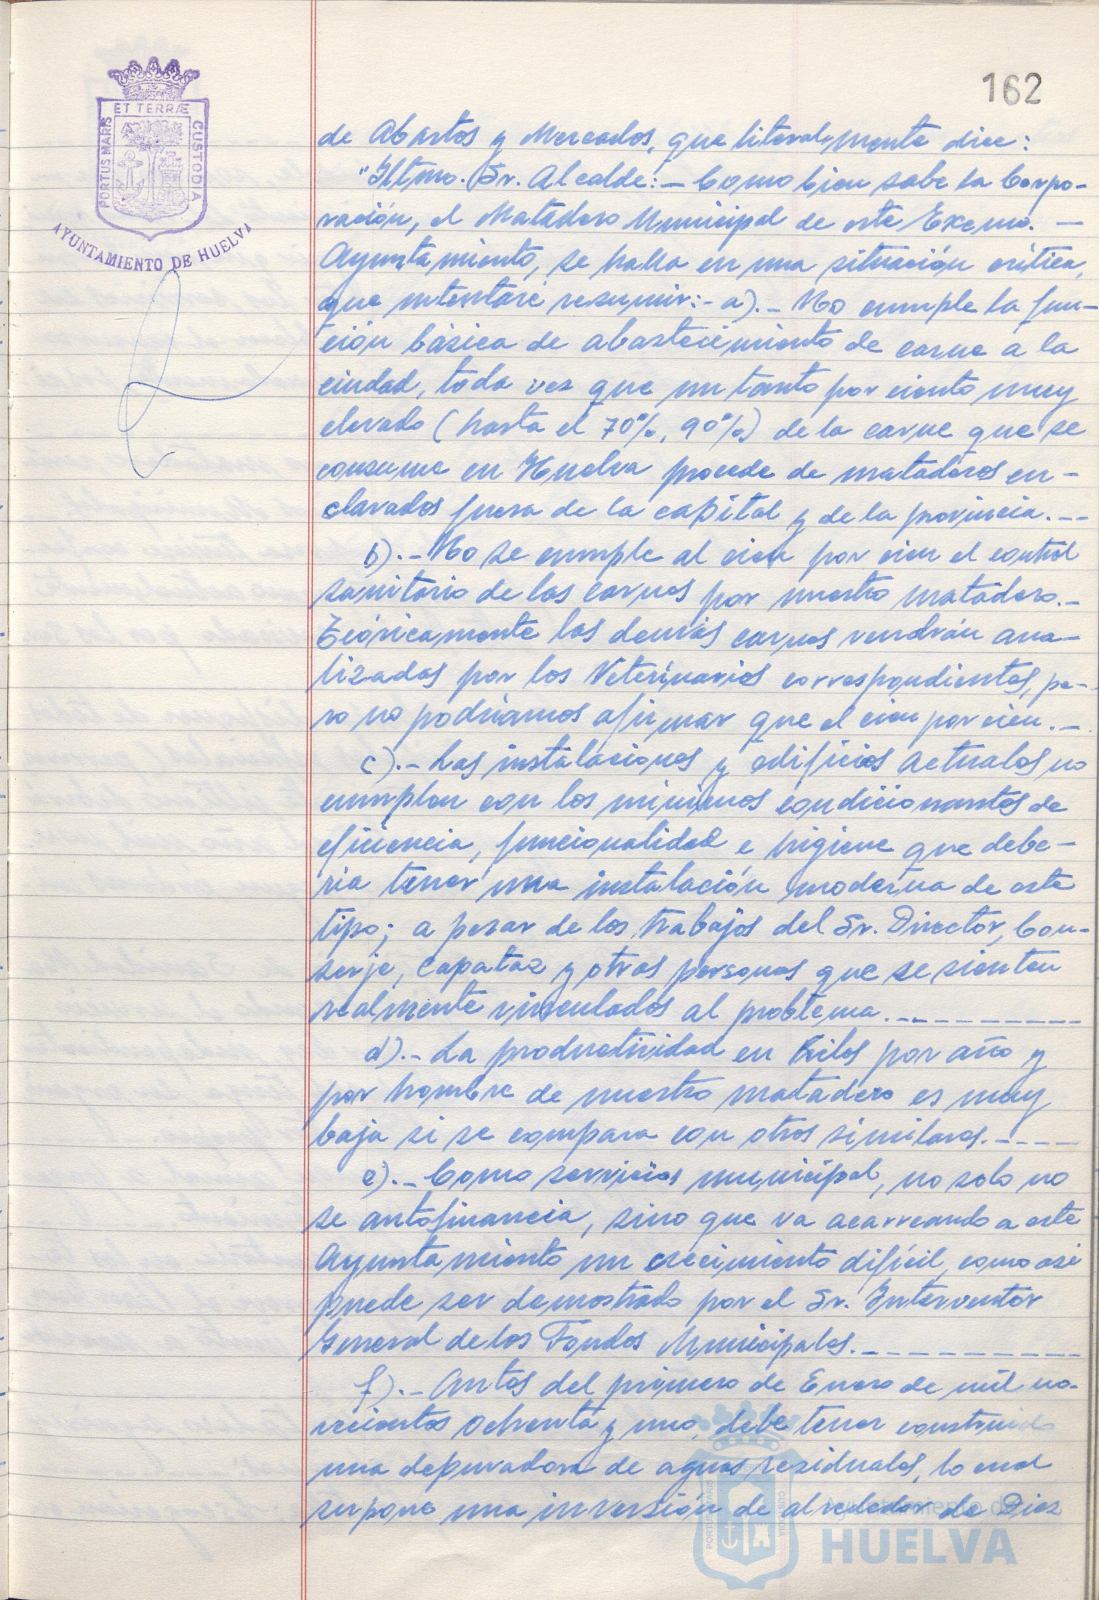 162
ET TERRÆ
PORTUS MARIS
CUSTODIA
AYUNTAMIENTO DE HUELVA
de Abastos y Mercados, que literalmente dice:
"Iltmo. Sr. Alcalde:- Como bien sabe la Corpo-
ración, el Matadero Municipal de este Excmo. -
Ayuntamiento, se halla en una situación crítica,
que intentaré resumir:- a).- No cumple la fun-
ción básica de abastecimiento de carne a la
ciudad, toda vez que un tanto por ciento muy
elevado (hasta el 70%, 90%) de la carne que se
consume en Huelva procede de mataderos en-
clavados fuera de la capital y de la provincia.--
b).- No se cumple al cien por cien el control
sanitario de las carnes por nuestro matadero.-
Teóricamente las demás carnes vendrán ana-
lizadas por los Veterinarios correspondientes, pe-
ro no podríamos afirmar que el cien por cien.-
c).- Las instalaciones y edificios actuales no
cumplen con los mínimos condicionantes de
eficiencia, funcionalidad e higiene que debe-
ría tener una instalación moderna de este
tipo; a pesar de los trabajos del Sr. Director, Con-
serje, Capataz y otras personas que se sienten
realmente vinculados al problema.----------
d).- La productividad en kilos por año y
por hombre de nuestro matadero es muy
baja si se compara con otros similares.-----
e).- Como servicios municipal, no solo no
se autofinancia, sino que va acarreando a este
Ayuntamiento un crecimiento difícil, como así
puede ser demostrado por el Sr. Interventor
General de los Fondos Municipales.----------
f).- Antes del primero de Enero de mil no-
vecientos ochenta y uno, debe tener construida
una depuradora de aguas residuales, lo cual
supone una inversión de alrededor de Diez
Ayuntamiento de
HUELVA